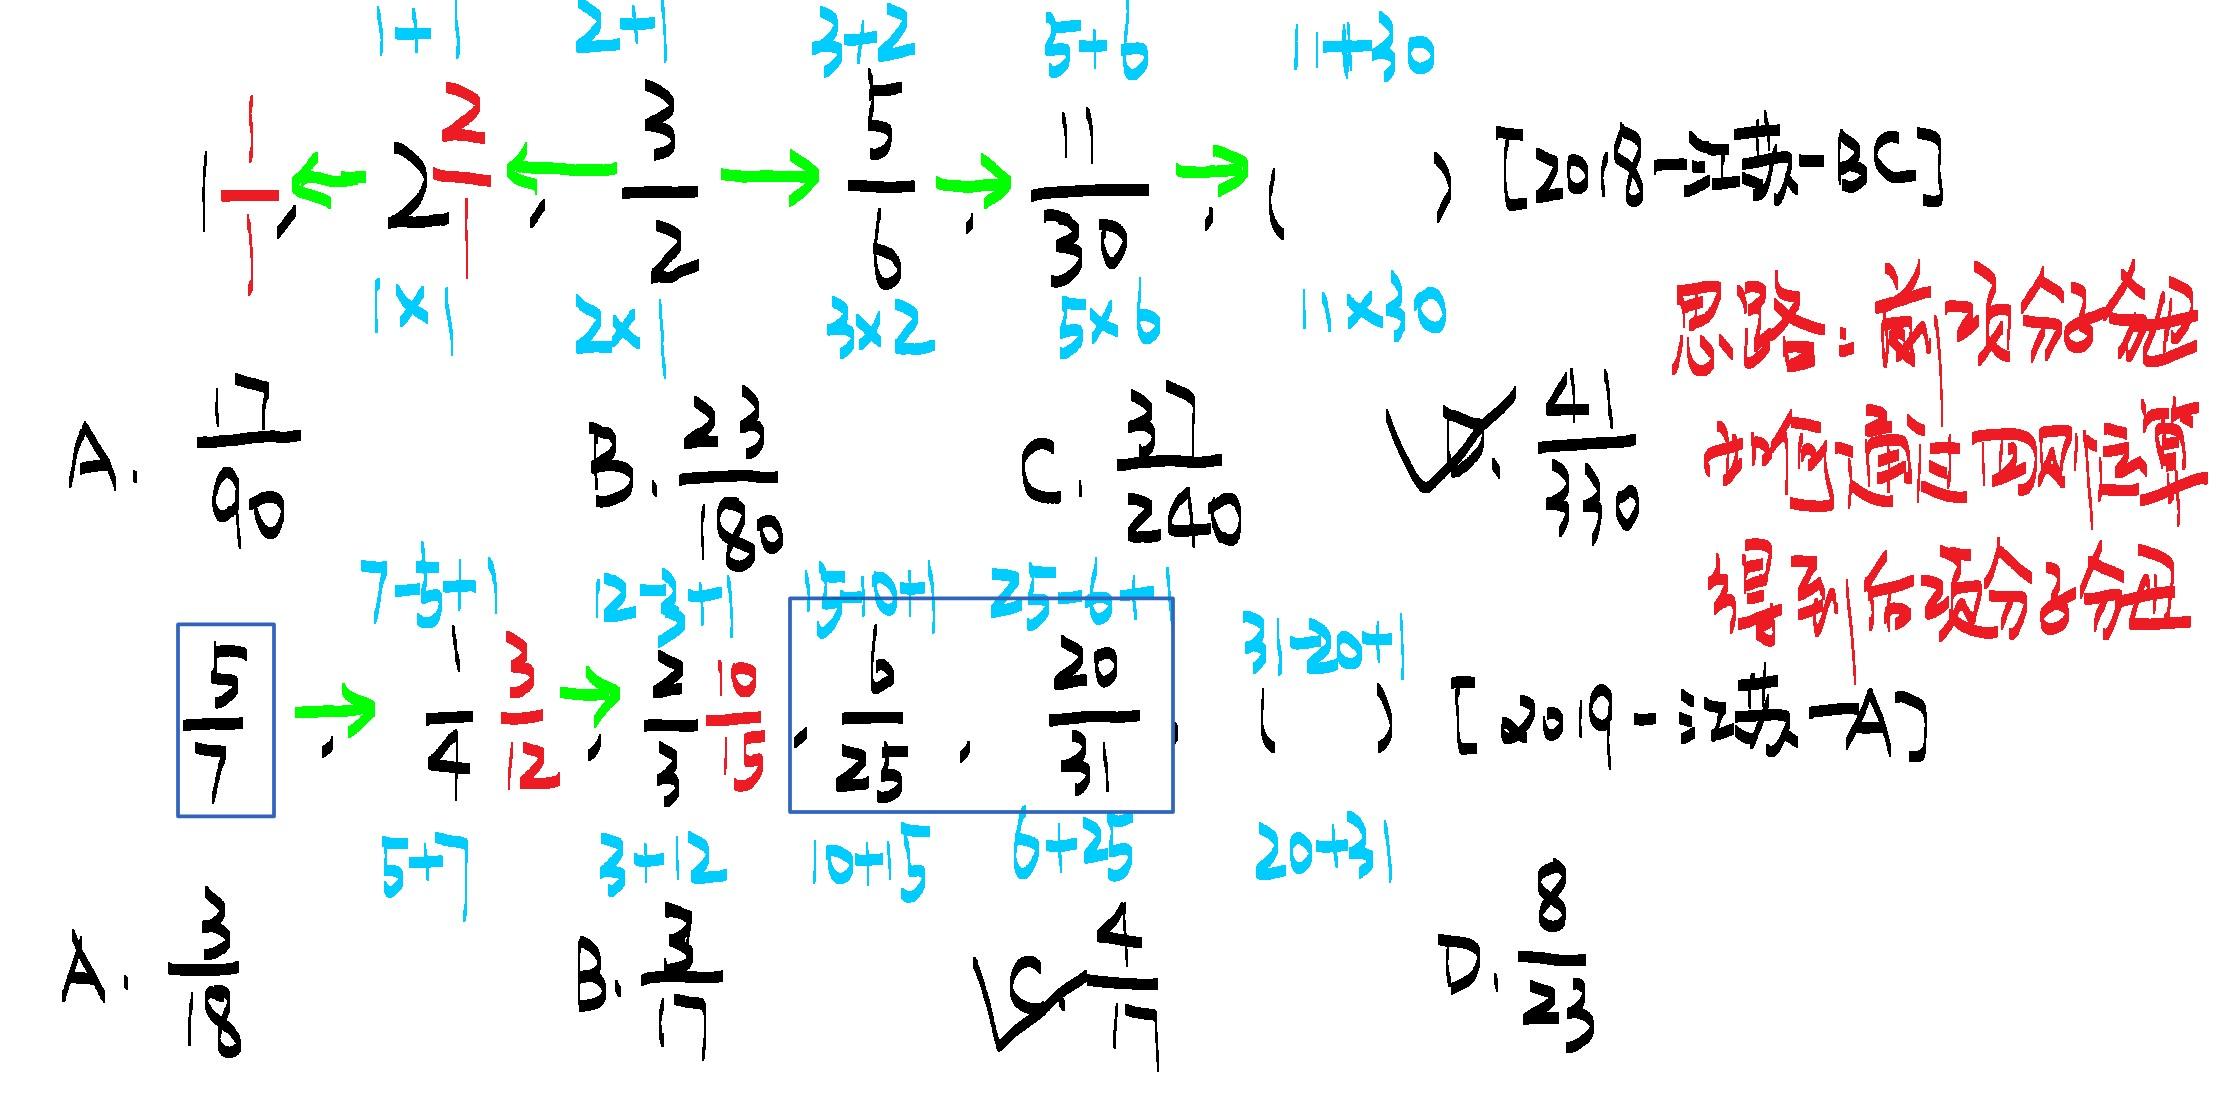 1+1 2+1 3+2 5+6 11+30
1 1/1, 2 2/1, 3/2, 5/6, 11/30, ( ) [2018-江苏-BC]
1×1 2×1 3×2 5×6 11×30
思路:前项分子分母
如何通过四则运算
得到后项分子分母
A. 17/90 B. 23/180 C. 37/240 D. 41/330
7-5+1 12-3+1 15-10+1 25-6+1 31-20+1
5/7, 1/4 3/12, 2/3 10/15, 6/25, 20/31, ( ) [2019-江苏-A]
5+7 3+12 10+15 6+25 20+31
A. 3/18 B. 3/17 C. 4/17 D. 8/23